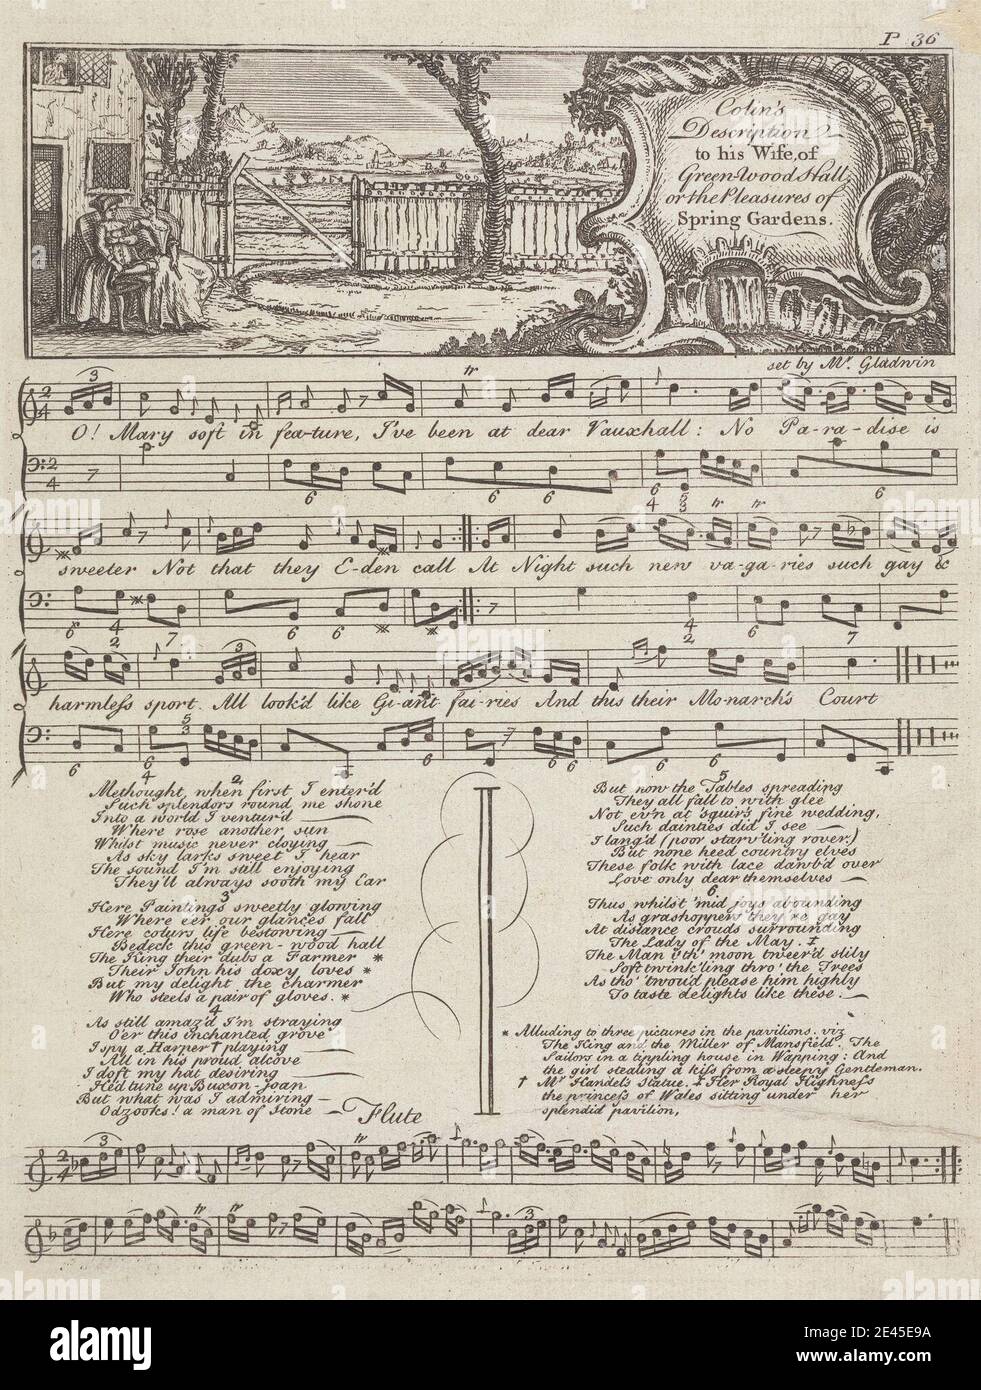 P 36
Colin's
Description
to his Wife, of
Green-Wood Hall
or the Pleasures of
Spring Gardens.
set by Mr. Gladwin
O! Mary soft in fea-ture, I've been at dear Vauxhall: No Pa-ra-dise is
sweeter Not that they E-den call At Night such new va-ga-ries such gay &
harmless sport. All look'd like Gi-ant fai-ries And this their Mo-narch's Court
2
Methought, when first I enter'd
Such splendors round me shone
Into a world I ventur'd
Where rose another sun
Whilst music never cloying
As sky larks sweet I hear
The sound I'm still enjoying
They'll always sooth my Ear
3
Here Paintings sweetly glowing
Where e'er our glances fall
Here colurs life bestowing
Bedeck this green-wood hall
The King their dubs a Farmer *
Their John his doxy loves *
But my delight the charmer
Who steels a pair of gloves. *
4
As still amaz'd I'm straying
O'er this inchanted grove
I spy a Harper † playing
All in his proud alcove
I doft my hat desiring
He'd tune up Buxon-Joan
But what was I admiring
Odzooks! a man of Stone
5
But now the Tables spreading
They all fall to with glee
Not ev'n at 'squir's fine wedding,
Such dainties did I see
I lang'd (poor starv'ling rover)
But none heed country elves
These folk with lace dawb'd over
Love only dear themselves
6
Thus whilst 'mid joys abounding
As grashoppers they're gay
At distance crouds surrounding
The Lady of the May. ‡
The Man i'th' moon tweer'd slily
Soft twink'ling thro' the Trees
As tho' 'twou'd please him highly
To taste delights like these.
* Alluding to three pictures in the pavilions. viz
The King and the Miller of Mansfield, The
Sailors in a tippling house in Wapping: And
the girl stealing a kiss from a sleepy Gentleman.
† Mr. Handel's Statue. ‡ Her Royal Highness
the princess of Wales sitting under her
splendid pavilion,
Flute
alamy
Image ID: 2E45E9A
www.alamy.com